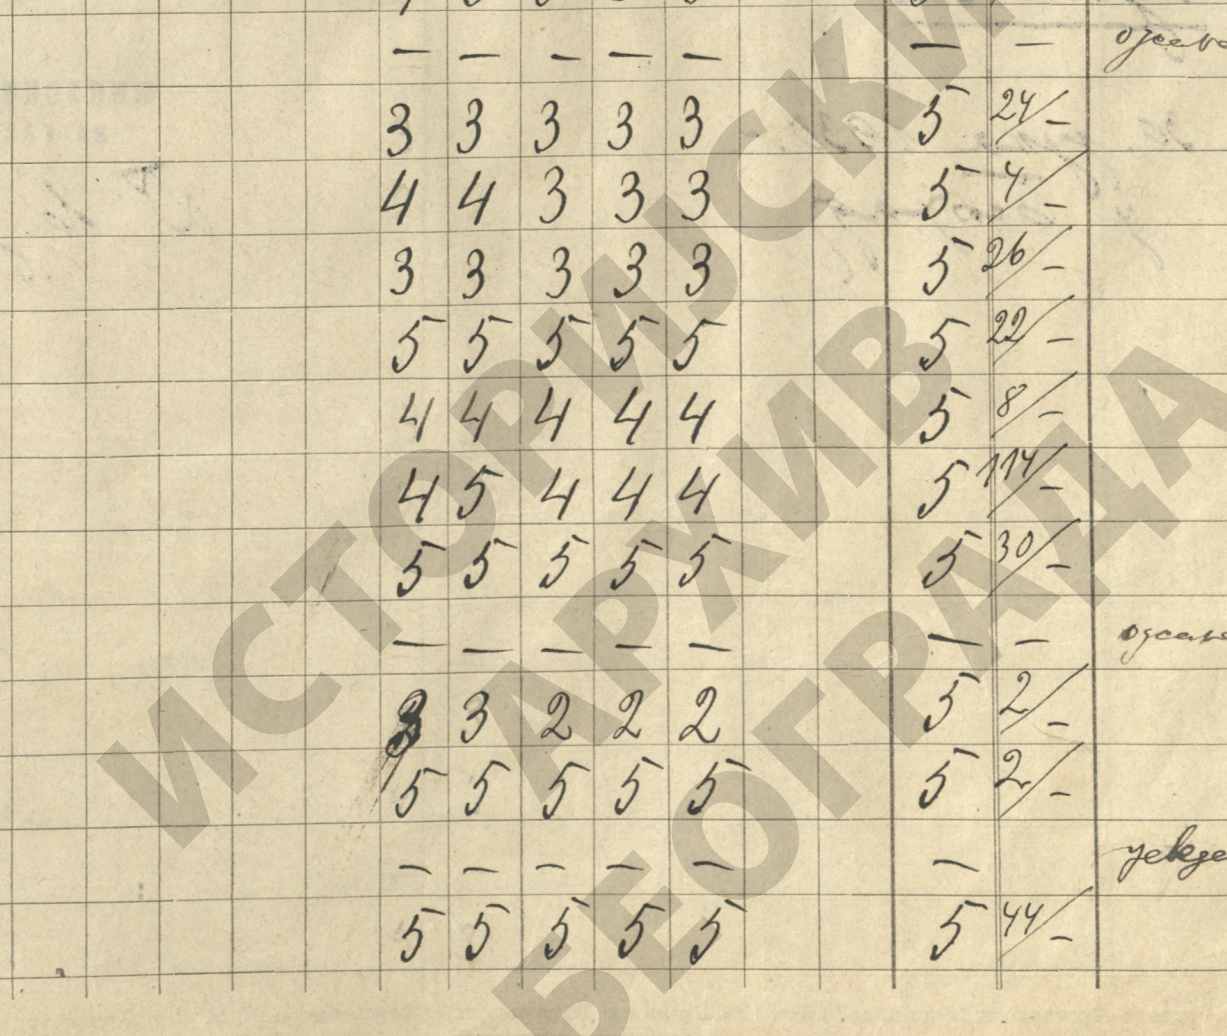 — — — — — — —
3 3 3 3 3 5 24/-
4 4 3 3 3 5 4/-
3 3 3 3 3 5 26/-
5 5 5 5 5 5 22/-
4 4 4 4 4 5 8/-
4 5 4 4 4 5 114/-
5 5 5 5 5 5 30/-
— — — — — — —
3 3 2 2 2 5 2/-
5 5 5 5 5 5 2/-
— — — — — —
5 5 5 5 5 5 44/-
ИСТОРИЈСКИ
АРХИВ
БЕОГРАДА